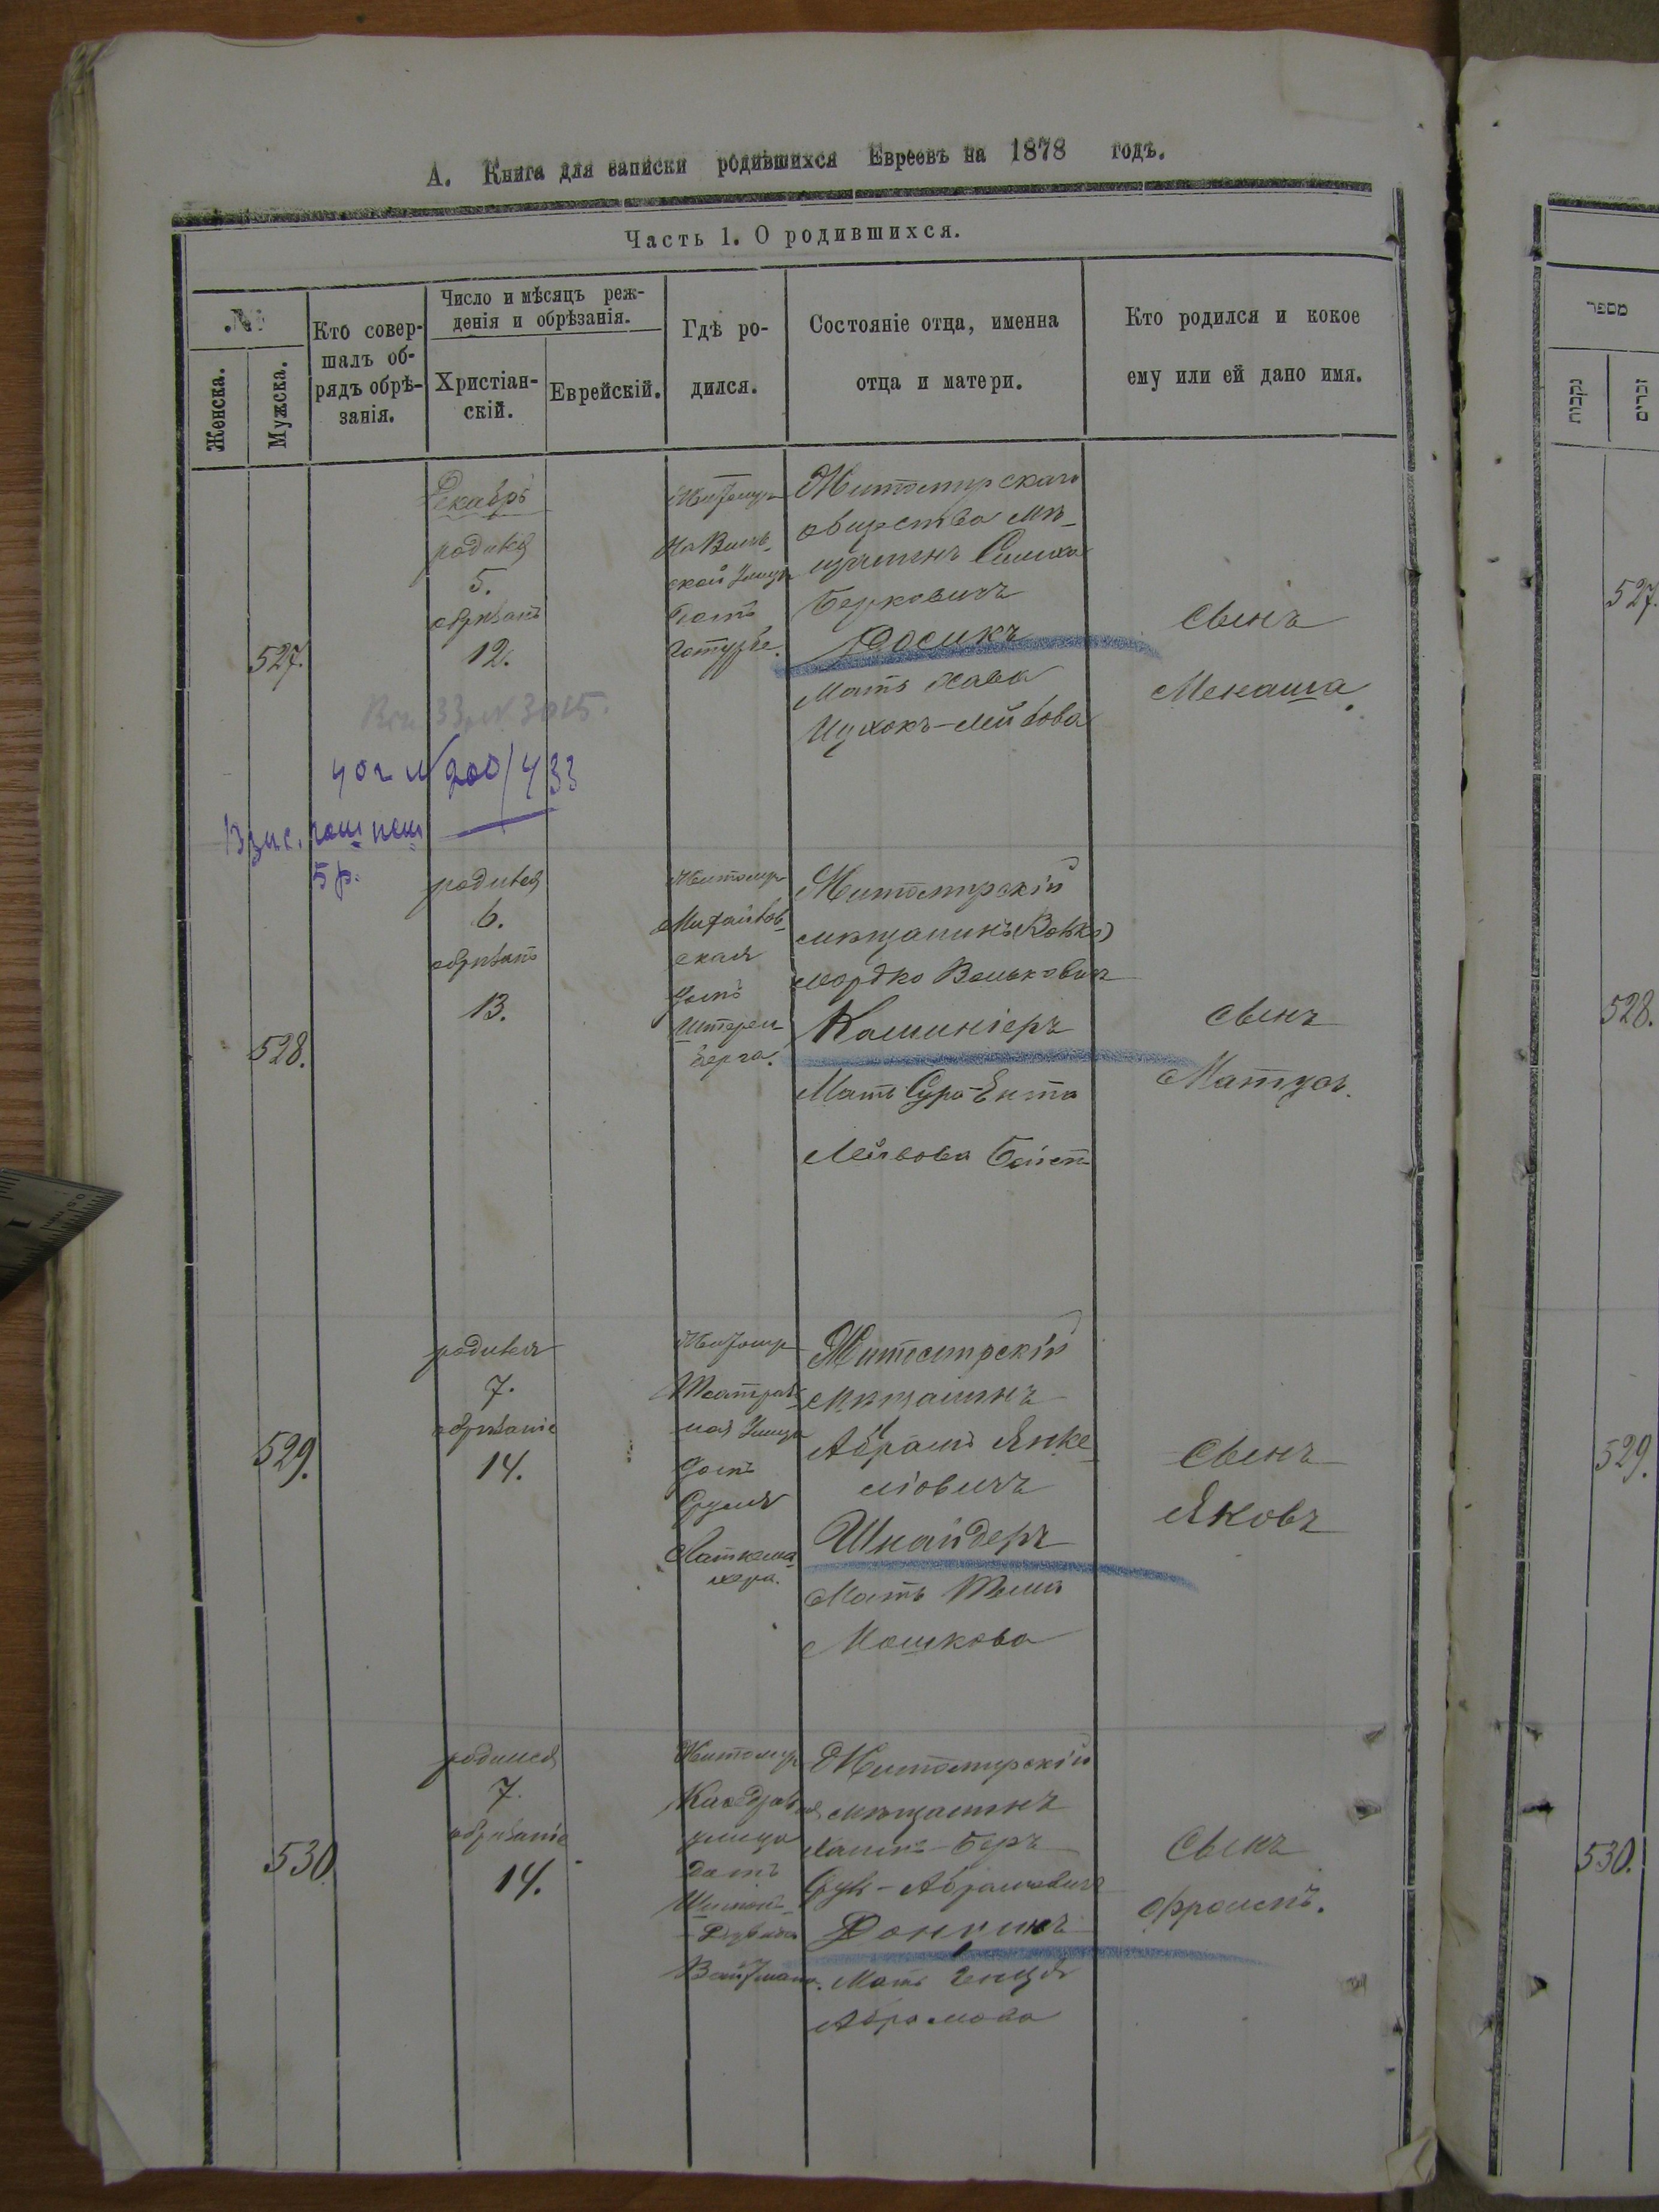 А. Книга для записки родившихся Евреевъ на 1878 годъ.
Часть 1. О родившихся.
№
Женска.
Мужска.
Кто совер-
шалъ об-
рядъ обрѣ-
занія.
Число и мѣсяцъ реж-
денія и обрѣзанія.
Христіан-
скій.
Еврейскій.
Гдѣ ро-
дился.
Состояніе отца, именна
отца и матери.
Кто родился и кокое
ему или ей дано имя.
527.
Декабрь
родился
5.
обрѣзанъ
12.
Житомир
на Виль-
ской улицѣ
домъ
Житомирскаго
общества мѣ-
щанинъ Симха
Берковичъ
Мать Хава
Ицхокъ-Лейбова
Сынъ
Менаша.
402 № 200/433
5 р.
528.
родился
6.
обрѣзанъ
13.
Житомир
Михайлов-
ская
домъ
Штерен-
берга.
Житомирскій
мѣщанинъ (Вовко)
Мордко Вольковичъ
Каминіеръ
Мать Сура-Ента
Лейбова
Сынъ
Матусъ.
529.
родился
7.
обрѣзаніе
14.
Житомир
Театраль-
ная улица
домъ
Сруля
Житомирскій
мѣщанинъ
Абрамъ Янке-
ліовичъ
Шнайдеръ
Мать
Мошкова
Сынъ
Яковъ
530.
родился
7.
обрѣзаніе
14.
Житомир
улица
домъ
Вайтмана.
Житомирскій
мѣщанинъ
Хаимъ-Беръ
Срул-Абрамовичъ
Донгинъ
Мать Генця
Абрамова
Сынъ
Фроимъ.
מספר
נקבות
זכרים
527.
528.
529.
530.